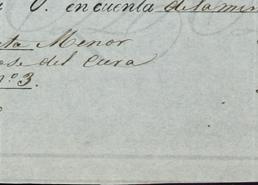 O. en cuenta de la min
ta Menor
ose del Cura
nº 3.